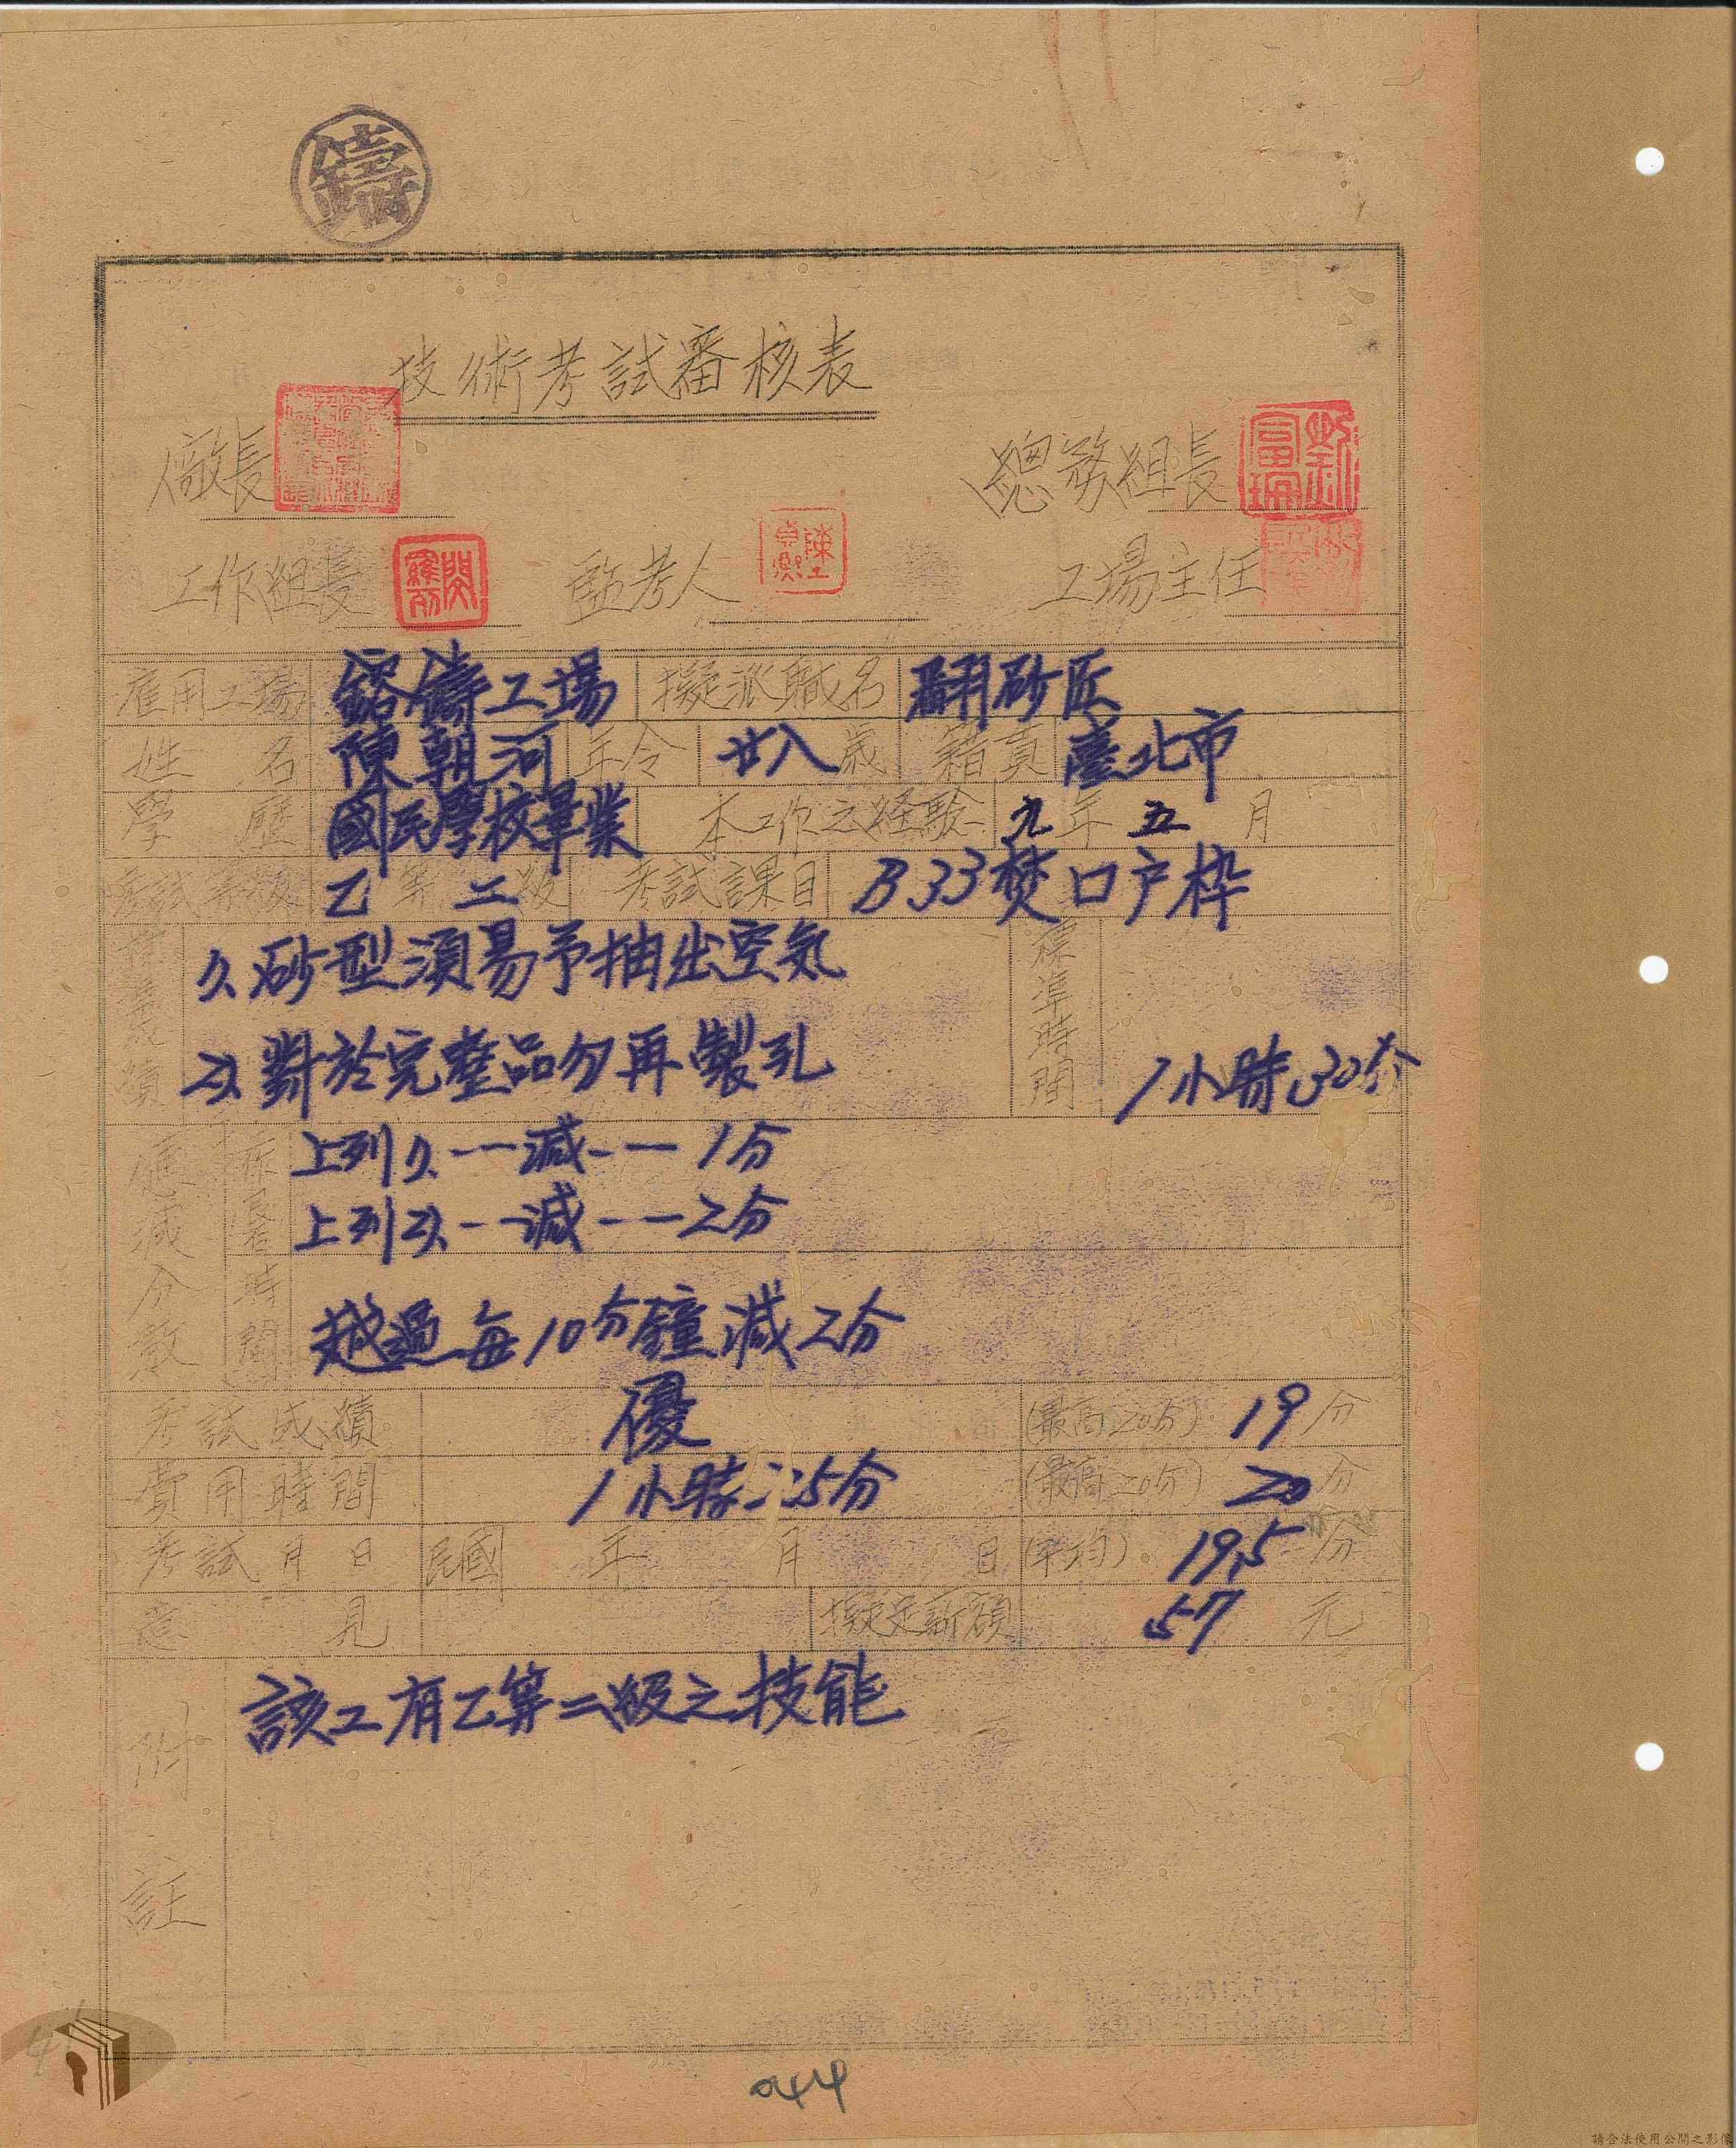 鑄
技術考試審核表
廠長 總務組長
工作組長 監考人 工場主任
雇用工場 鎔鑄工場 擬派職名 翻砂匠
姓名 陳朝河 年令 廿八歲 籍貫 臺北市
學歷 國民學校畢業 本工作之経驗 九年五月
考試等級 乙等二級 考試課目 B33焚口戶枠
作業成績 1、砂型須易予抽出空気 標準時間 1小時30分
2、對於完整品勿再製孔
上列1、--減--1分
上列2、--減--2分
減分 時間 越過每10分鐘減2分
考試成績 優 (最高20分) 19分
費用時間 1小時25分 (最高20分) 20分
考試月日 民國 年 月 日 (平均) 19.5分
意見 擬定薪額 57元
附註 該工有乙等二級之技能
044
請合法使用公開之影像